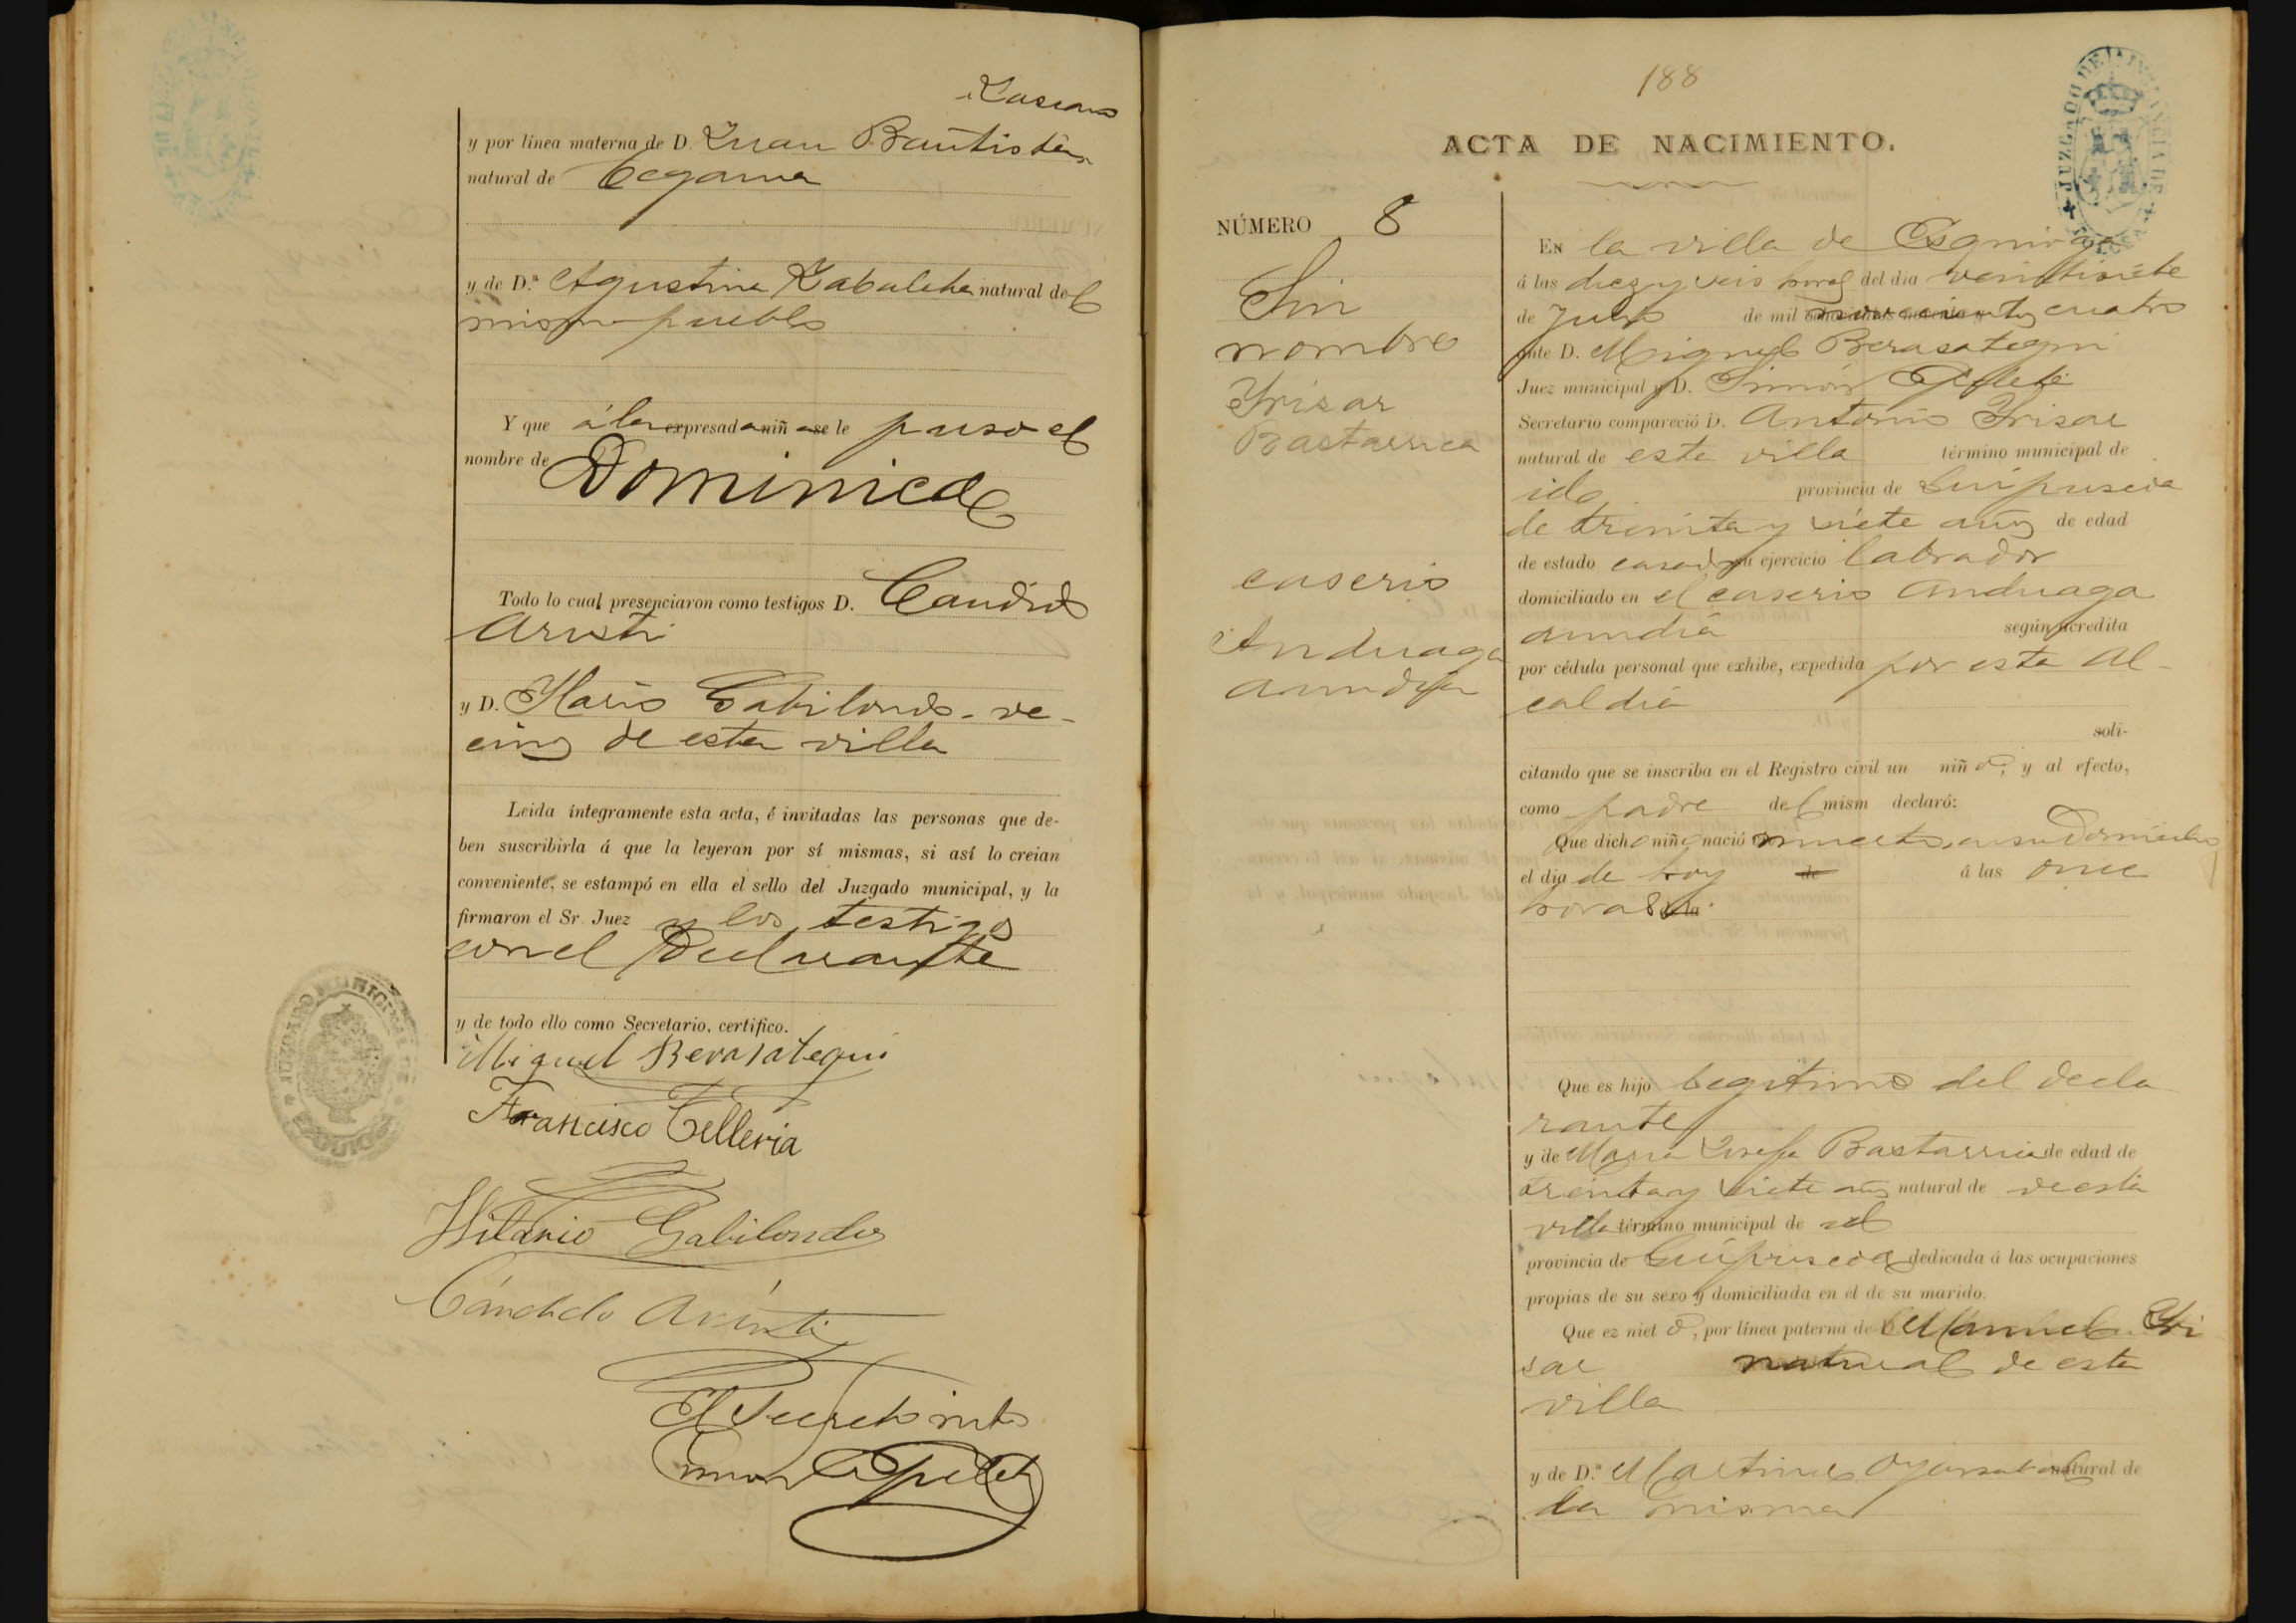 y por línea materna de D. Juan Bautista
natural de Cegama
y de D.ª Agustina Zabaleta natural del
mismo pueblo
Y que á la expresada niña se le puso el
nombre de Dominica
Todo lo cual presenciaron como testigos D. Candido
Aristi
y D. Ilario Gabilondo - ve-
cinos de esta villa
Leida íntegramente esta acta, é invitadas las personas que de-
ben suscribirla á que la leyeran por sí mismas, si así lo creian
conveniente, se estampó en ella el sello del Juzgado municipal, y la
firmaron el Sr. Juez y los testigos
con el Declarante
y de todo ello como Secretario, certifico.
Miguel Berasategui
Francisco Telleria
Hilario Gabilondo
Cándido Aristi
El Secretario
Simon
JUZGADO MUNICIPAL DE
188
ACTA DE NACIMIENTO.
NÚMERO 8
Sin
nombre
Yrizar
Bastarrica
caserio
Anduaga
aundia
EN la villa de Ezquioga
á las diez y seis horas del dia veintisiete
de Julio de mil novecientos cuatro
ante D. Miguel Berasategui
Juez municipal y D. Simón
Secretario compareció D. Antonio Yrizar
natural de esta villa término municipal de
id. provincia de Guipuscoa
de treinta y siete años de edad
de estado casado su ejercicio labrador
domiciliado en el caserio Anduaga
aundia según acredita
por cédula personal que exhibe, expedida por esta Al-
caldia
soli-
citando que se inscriba en el Registro civil un niño; y al efecto,
como padre del mism declaró:
Que dicho niño nació muerto en su Domicilio
el dia de hoy de á las once
horas
Que es hijo legitimo del decla
rante
y de Maria Josefa Bastarrica de edad de
treinta y siete años natural de de esta
villa término municipal de id
provincia de Guipuscoa dedicada á las ocupaciones
propias de su sexo y domiciliada en el de su marido.
Que es nieto, por línea paterna de Manuel Yri
zar natural de esta
villa
y de D.ª Martina Oyarzabal natural de
la misma